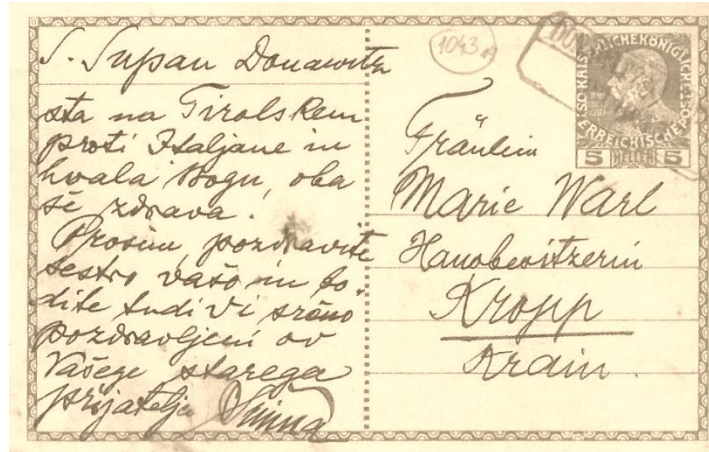 S. Supan Donawitz
sta na Tirolskem
proti Italjane in
hvala Bogu, oba
še zdrava.
Prosim, pozdravite
sestro vašo in bo-
dite tudi Vi srčno
pozdravljeni ov
Vašega starega
prijatelja
1043
5 HELLER 5
Fräulein
Marie Warl
Hausbesitzerin
Kropp
Krain.